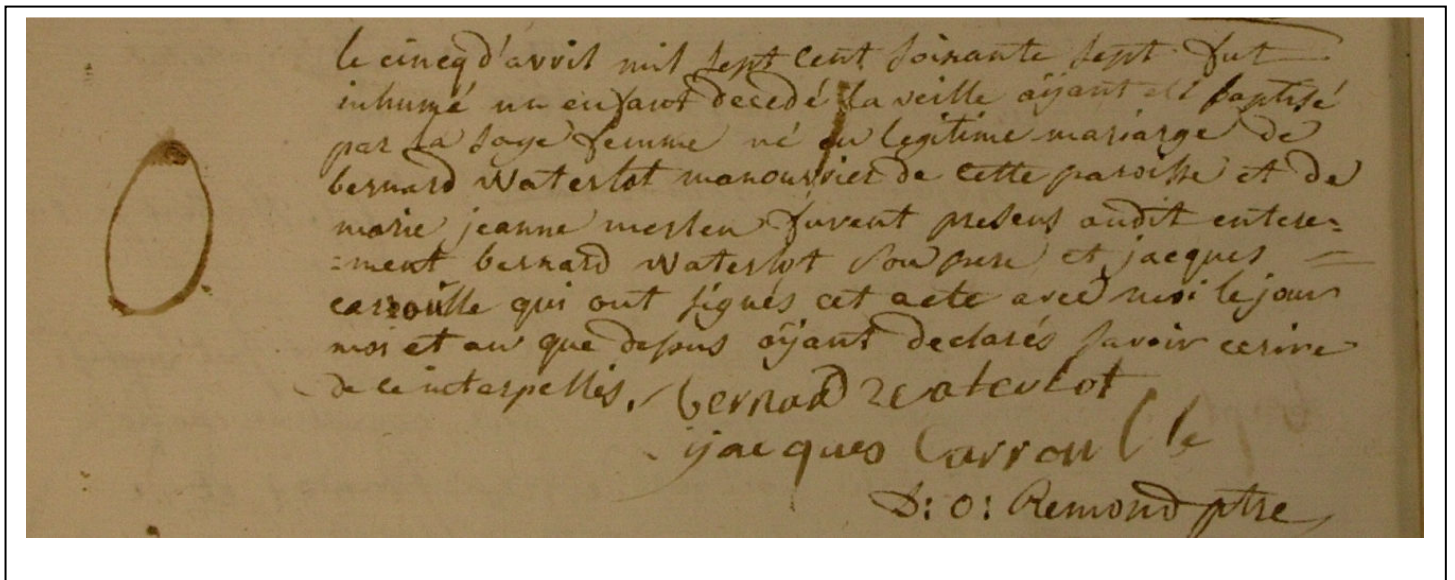 le cincq d'avril mil sept cent soixante sept fut
inhumé un enfant decedé la veille aÿant eté baptisé
par la sage femme né en legitime mariage de
bernard Waterlot manouvrier de cette paroisse et de
marie jeanne merlen furent presens audit entere=
=ment bernard Waterlot son pere et jacques
carroulle qui ont signés cet acte avec moi le jour
mois et an que dessus aÿant declarés savoir ecrire
de ce interpellés. bernard Waterlot
jacques Carroulle
D: O: Remond ptre